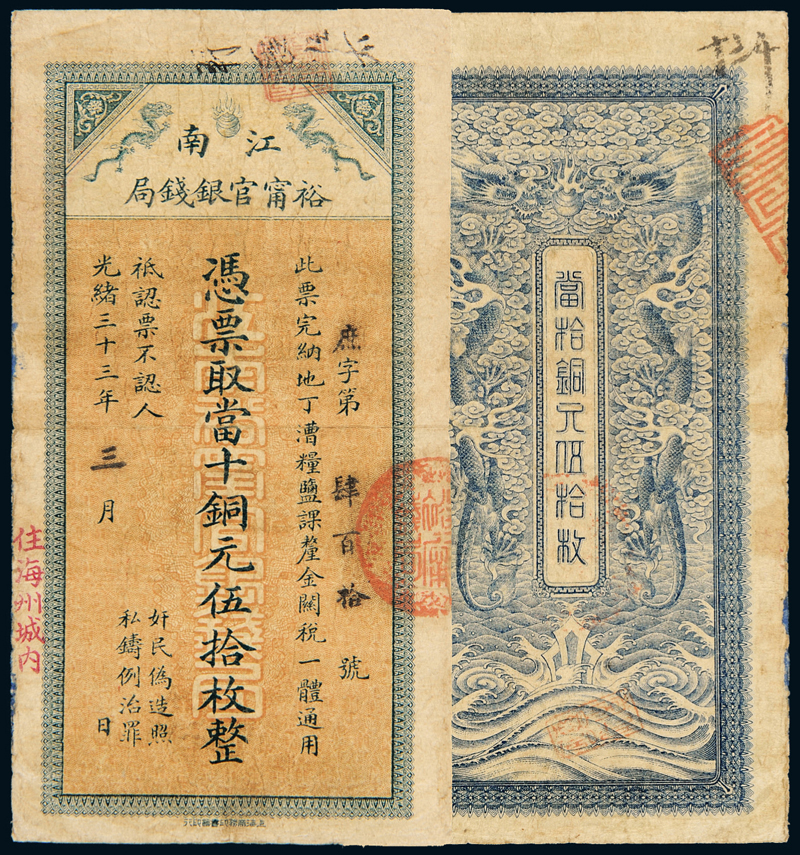 江南
裕甯官銀錢局
庶字第肆百拾號
此票完納地丁漕糧鹽課釐金關稅一體通用
憑票取當十銅元伍拾枚整
祗認票不認人
光緒三十三年三月日
奸民偽造照
私鑄例治罪
住海州城内
當拾銅元伍拾枚